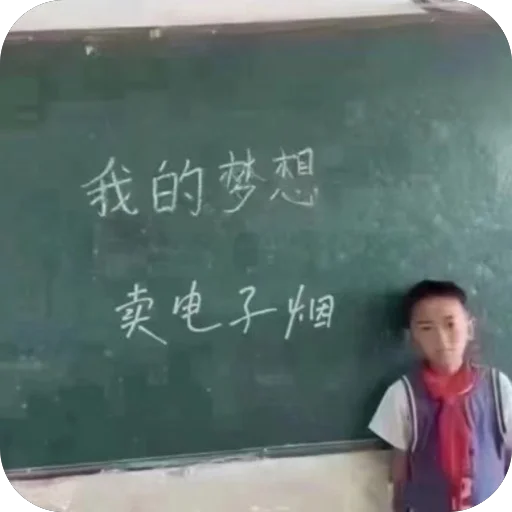 我的梦想
卖电子烟